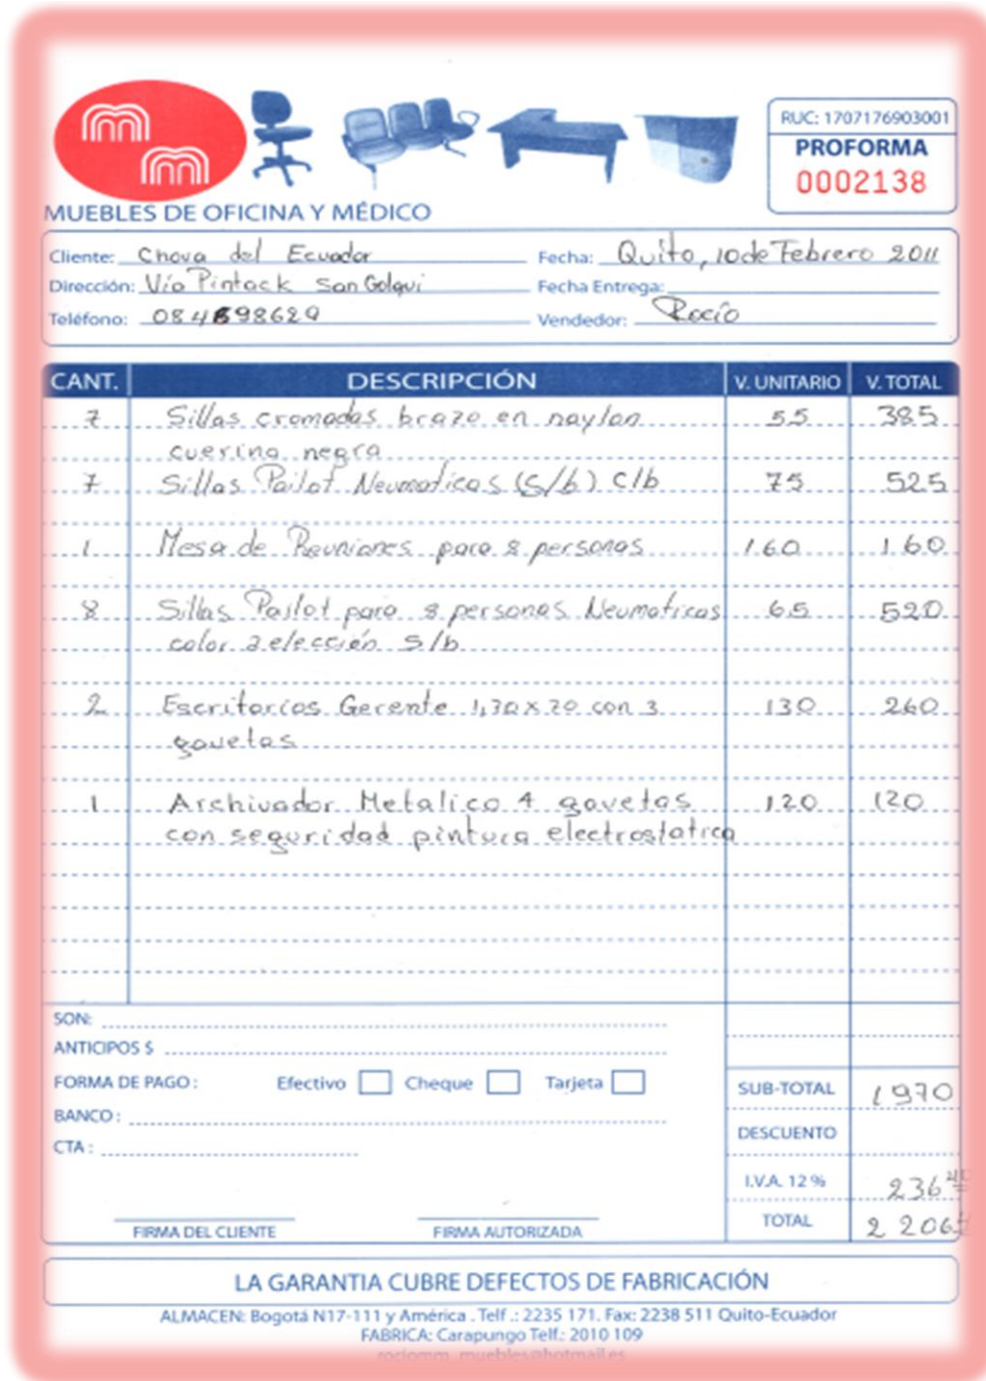 RUC: 1707176903001
PROFORMA
0002138
MUEBLES DE OFICINA Y MÉDICO
Cliente: Chova del Ecuador Fecha: Quito, 10 de Febrero 2011
Dirección: Vía Pintack San Golqui Fecha Entrega:
Teléfono: 084698629 Vendedor: Rocío
CANT. DESCRIPCIÓN V. UNITARIO V. TOTAL
7 Sillas cromadas brazo en naylon 55 385
cuerina negra
7 Sillas Pailot Neumaticas (S/b) C/b 75 525
1 Mesa de Reuniones para 8 personas 160 160
8 Sillas Pailot para 8 personas Neumaticas 65 520
color a elección S/b
2 Escritorios Gerente 1,70 x 70 con 3 130 260
gavetas
1 Archivador Metalico 4 gavetas 120 120
con seguridad pintura electrostatica
SON:
ANTICIPOS $
FORMA DE PAGO: Efectivo Cheque Tarjeta
SUB-TOTAL 1970
BANCO:
DESCUENTO
CTA:
I.V.A. 12 % 236 40
TOTAL 2206
FIRMA DEL CLIENTE FIRMA AUTORIZADA
LA GARANTIA CUBRE DEFECTOS DE FABRICACIÓN
ALMACEN: Bogotá N17-111 y América . Telf .: 2235 171. Fax: 2238 511 Quito-Ecuador
FABRICA: Carapungo Telf.: 2010 109
rociomm_muebles@hotmail.es